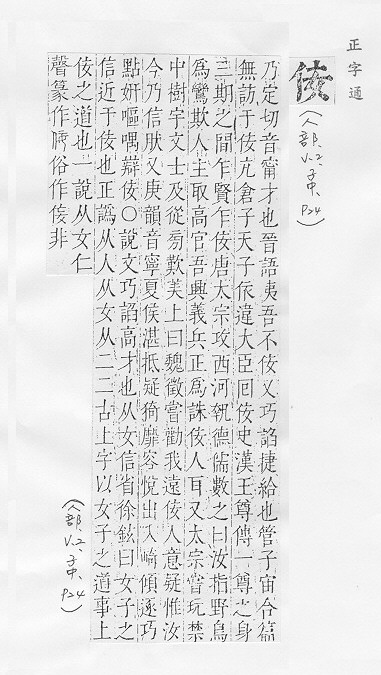 正字通
佞
(人部, V.2, 子中, P24)
乃定切音甯才也晉語夷吾不佞又巧諂捷給也管子宙合篇
無訪于佞亢倉子天子依違大臣囘佞史漢王尊傳一尊之身
三期之間乍賢乍佞唐太宗攻西河執德儒數之曰汝指野鳥
爲鸞欺人主取高官吾興義兵正爲誅佞人耳又太宗嘗玩禁
中樹宇文士及從旁歎美上曰魏徵嘗勸我遠佞人意疑惟汝
今乃信肰又庚韻音寧夏侯湛抵疑猗靡容悅出入崎傾逐巧
點妍嘔喁辯佞〇說文巧諂高才也从女信省徐鉉曰女子之
信近于佞也正譌从人从女从二二古上字以女子之道事上
佞之道也一說从女仁
聲篆作俗作侫非
(人部, V.2, 子中, P24)